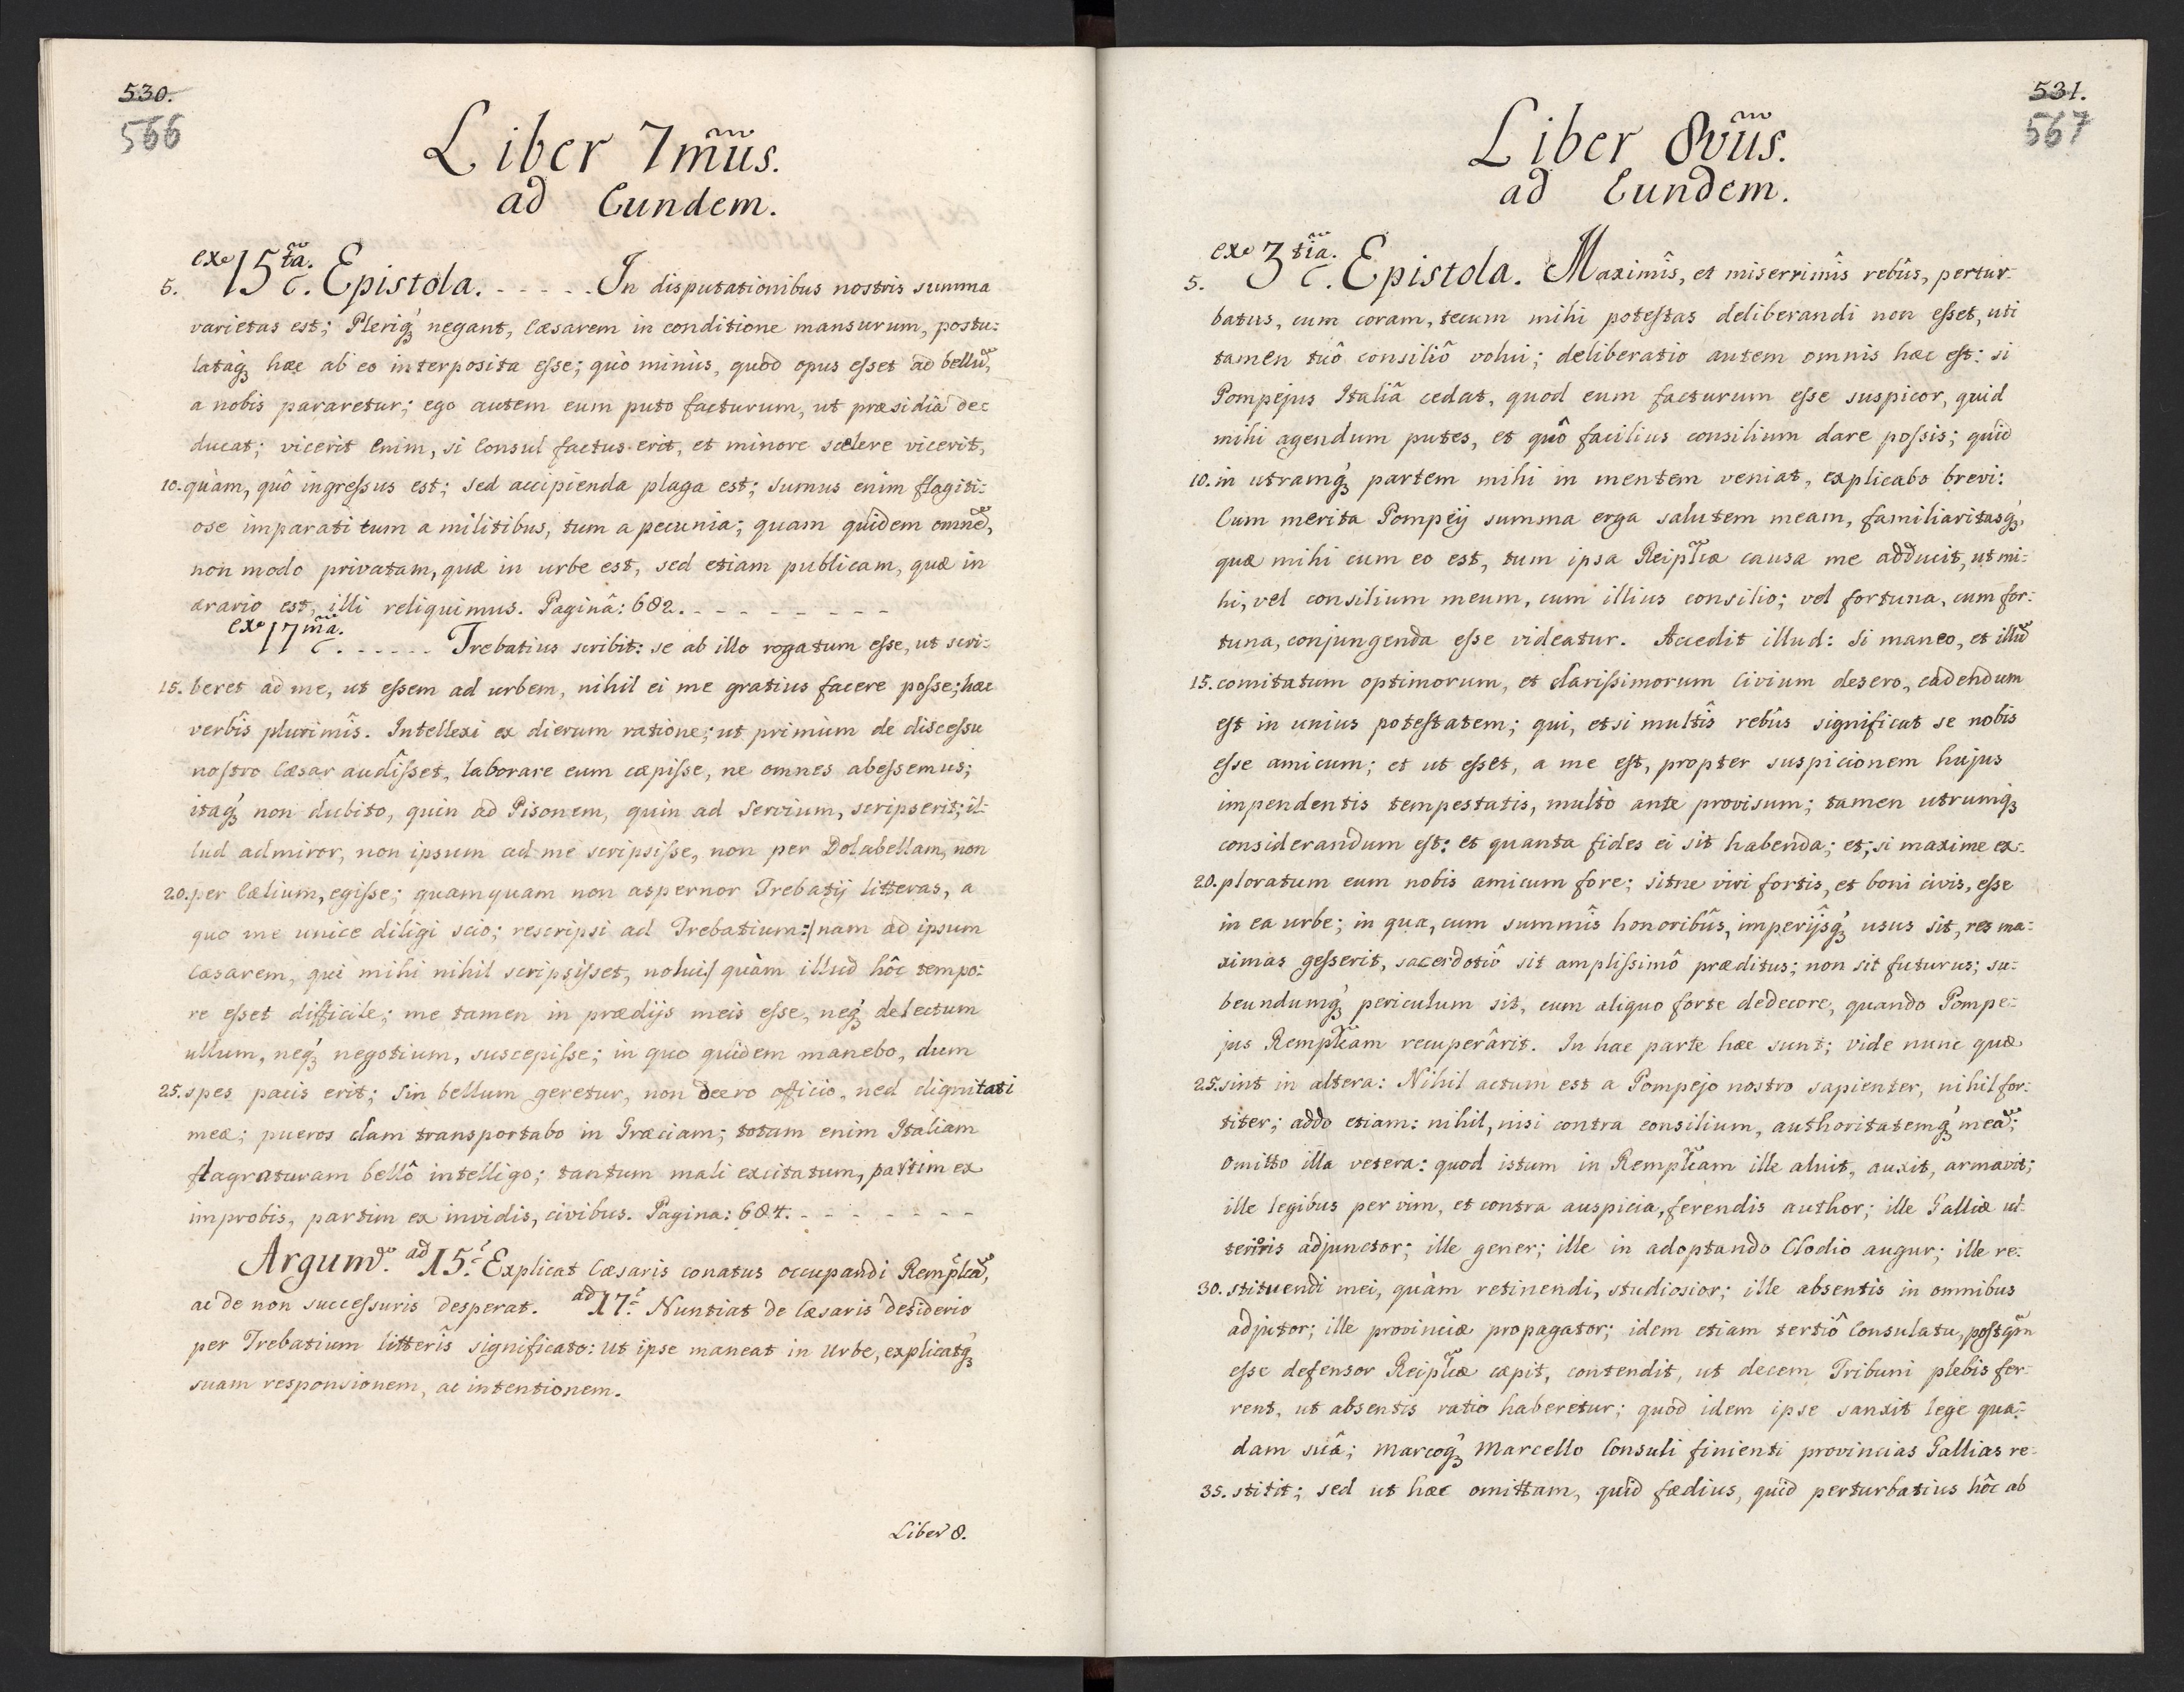 530.
566
Liber 7mus.
ad Eundem.
5. ex 15ta. Epistola. - - - - - In disputationibus nostris summa
varietas est; Pleriq́ꝫ negant, Cæsarem in conditione mansurum, postu:
lataq́ꝫ hæc ab eo interposita esse; quò minùs, quod opus esset ad bellũ,
a nobis pararetur; ego autem eum puto facturum, ut præsidia de:
ducat; vicerit enim, si Consul factus erit, et minore scelere vicerit,
10. quàm, quô ingressus est; sed accipienda plaga est; sumus enim flagiti:
ose imparati tum a militibus, tum a pecunia; quam quidem omnẽ,
non modo privatam, quæ in urbe est, sed etiam publicam, quæ in
ærario est, illi reliquimus. Paginâ: 682. - - - - - - - - -
ex 17ma. - - - - - Trebatius scribit: se ab illo rogatum esse, ut scri:
15. beret ad me, ut essem ad urbem, nihil ei me gratius facere posse; hæc
verbîs plurimîs. Intellexi ex dierum ratione; ut primùm de discessu
nostro Cæsar audîsset, laborare eum cæpisse, ne omnes abessemus;
itaq́ꝫ non dubito, quin ad Pisonem, quin ad Servium, scripserit; il:
lud admiror, non ipsum ad me scripsisse, non per Dolabellam, non
20. per Cælium, egisse; quamquam non aspernor Trebatij litteras, a
quo me unice diligi scio; rescripsi ad Trebatium:/ nam ad ipsum
Cæsarem, qui mihi nihil scripsisset, nolui/ quàm illud hôc tempo:
re esset difficile; me tamen in prædijs meis esse, neq́ꝫ delectum
ullum, neq́ꝫ negotium, suscepisse; in quo quidem manebo, dum
25. spes pacis erit; Sin bellum geretur, non deero officio, nec dignitati
meæ; pueros clam transportabo in Græciam; totam enim Italiam
flagraturam bellô intelligo; tantum mali excitatum, partim ex
improbis, partim ex invidis, civibus. Pagina: 684. - - - - - - -
Argumẽ. ad 15. Explicat Cæsaris conatus occupandi Remplcã,
ac de non successuris desperat. ad 17. Nuntiat de Cæsaris desiderio
per Trebatium litterîs significato: ut ipse maneat in Urbe, explicatq́ꝫ
suam responsionem, ac intentionem.
Liber 8.
531.
567
Liber 8vus.
ad Eundem.
5. ex 3tia. Epistola. Maximîs, et miserrimîs rebûs, pertur:
batus, cum coram, tecum mihi potestas deliberandi non esset, uti
tamen tuô consiliô volui; deliberatio autem omnis hæc est: si
Pompejus Italiâ cedat, quod eum facturum esse suspicor, quid
mihi agendum putes, et quô facilius consilium dare possis; quid
10. in utramq́ꝫ partem mihi in mentem veniat, explicabo brevi:
Cum merita Pompeij summa erga salutem meam, familiaritasq́ꝫ,
quæ mihi cum eo est, tum ipsa Reiplcæ causa me adducit, ut mi:
hi, vel consilium meum, cum illius consilio; vel fortuna, cum for:
tuna, conjungenda esse videatur. Accedit illud: Si maneo, et illũ
15. comitatum optimorum, et clarissimorum Civium desero, cadendum
est in unius potestatem; qui, etsi multîs rebûs significat se nobis
esse amicum; et ut esset, a me est, propter suspicionem hujus
impendentis tempestatis, multò ante provisum; tamen utrumq́ꝫ
considerandum est: et quanta fides ei sit habenda; et; si maxime ex:
20. ploratum eum nobis amicum fore; sitne viri fortis, et boni civis, esse
in ea urbe; in qua, cum summîs honoribûs, imperijsq́ꝫ usus sit, res ma:
ximas gesserit, sacerdotiô sit amplissimô præditus; non sit futurus; su:
beundumq́ꝫ periculum sit, cum aliquo forte dedecore, quando Pompe:
jus Remplcam recuperârit. In hac parte hæc sunt; vide nunc quæ
25. sint in altera: Nihil actum est a Pompejo nostro sapienter, nihil for:
titer; addo etiam: nihil, nisi contra consilium, authoritatemq́ꝫ meã;
Omitto illa vetera: quod istum in Remplcam ille aluit, auxit, armavit;
ille legibus per vim, et contra auspicia, ferendis author; ille Galliæ ul:
terioris adjunctor; ille gener; ille in adoptando Clodio augur; ille re:
30. stituendi mei, quàm retinendi, studiosior; ille absentis in omnibus
adjutor; ille provinciæ propagator; idem etiam tertiô Consulatu, postqm̃
esse defensor Reiplcæ cæpit, contendit, ut decem Tribuni plebis fer:
rent, ut absentis ratio haberetur; quod idem ipse sanxit lege qua:
dam suâ; Marcoq́ꝫ Marcello Consuli finienti provincias Gallias re:
35. stitit; sed ut hæc omittam, quid fædius, quid perturbatius hôc ab